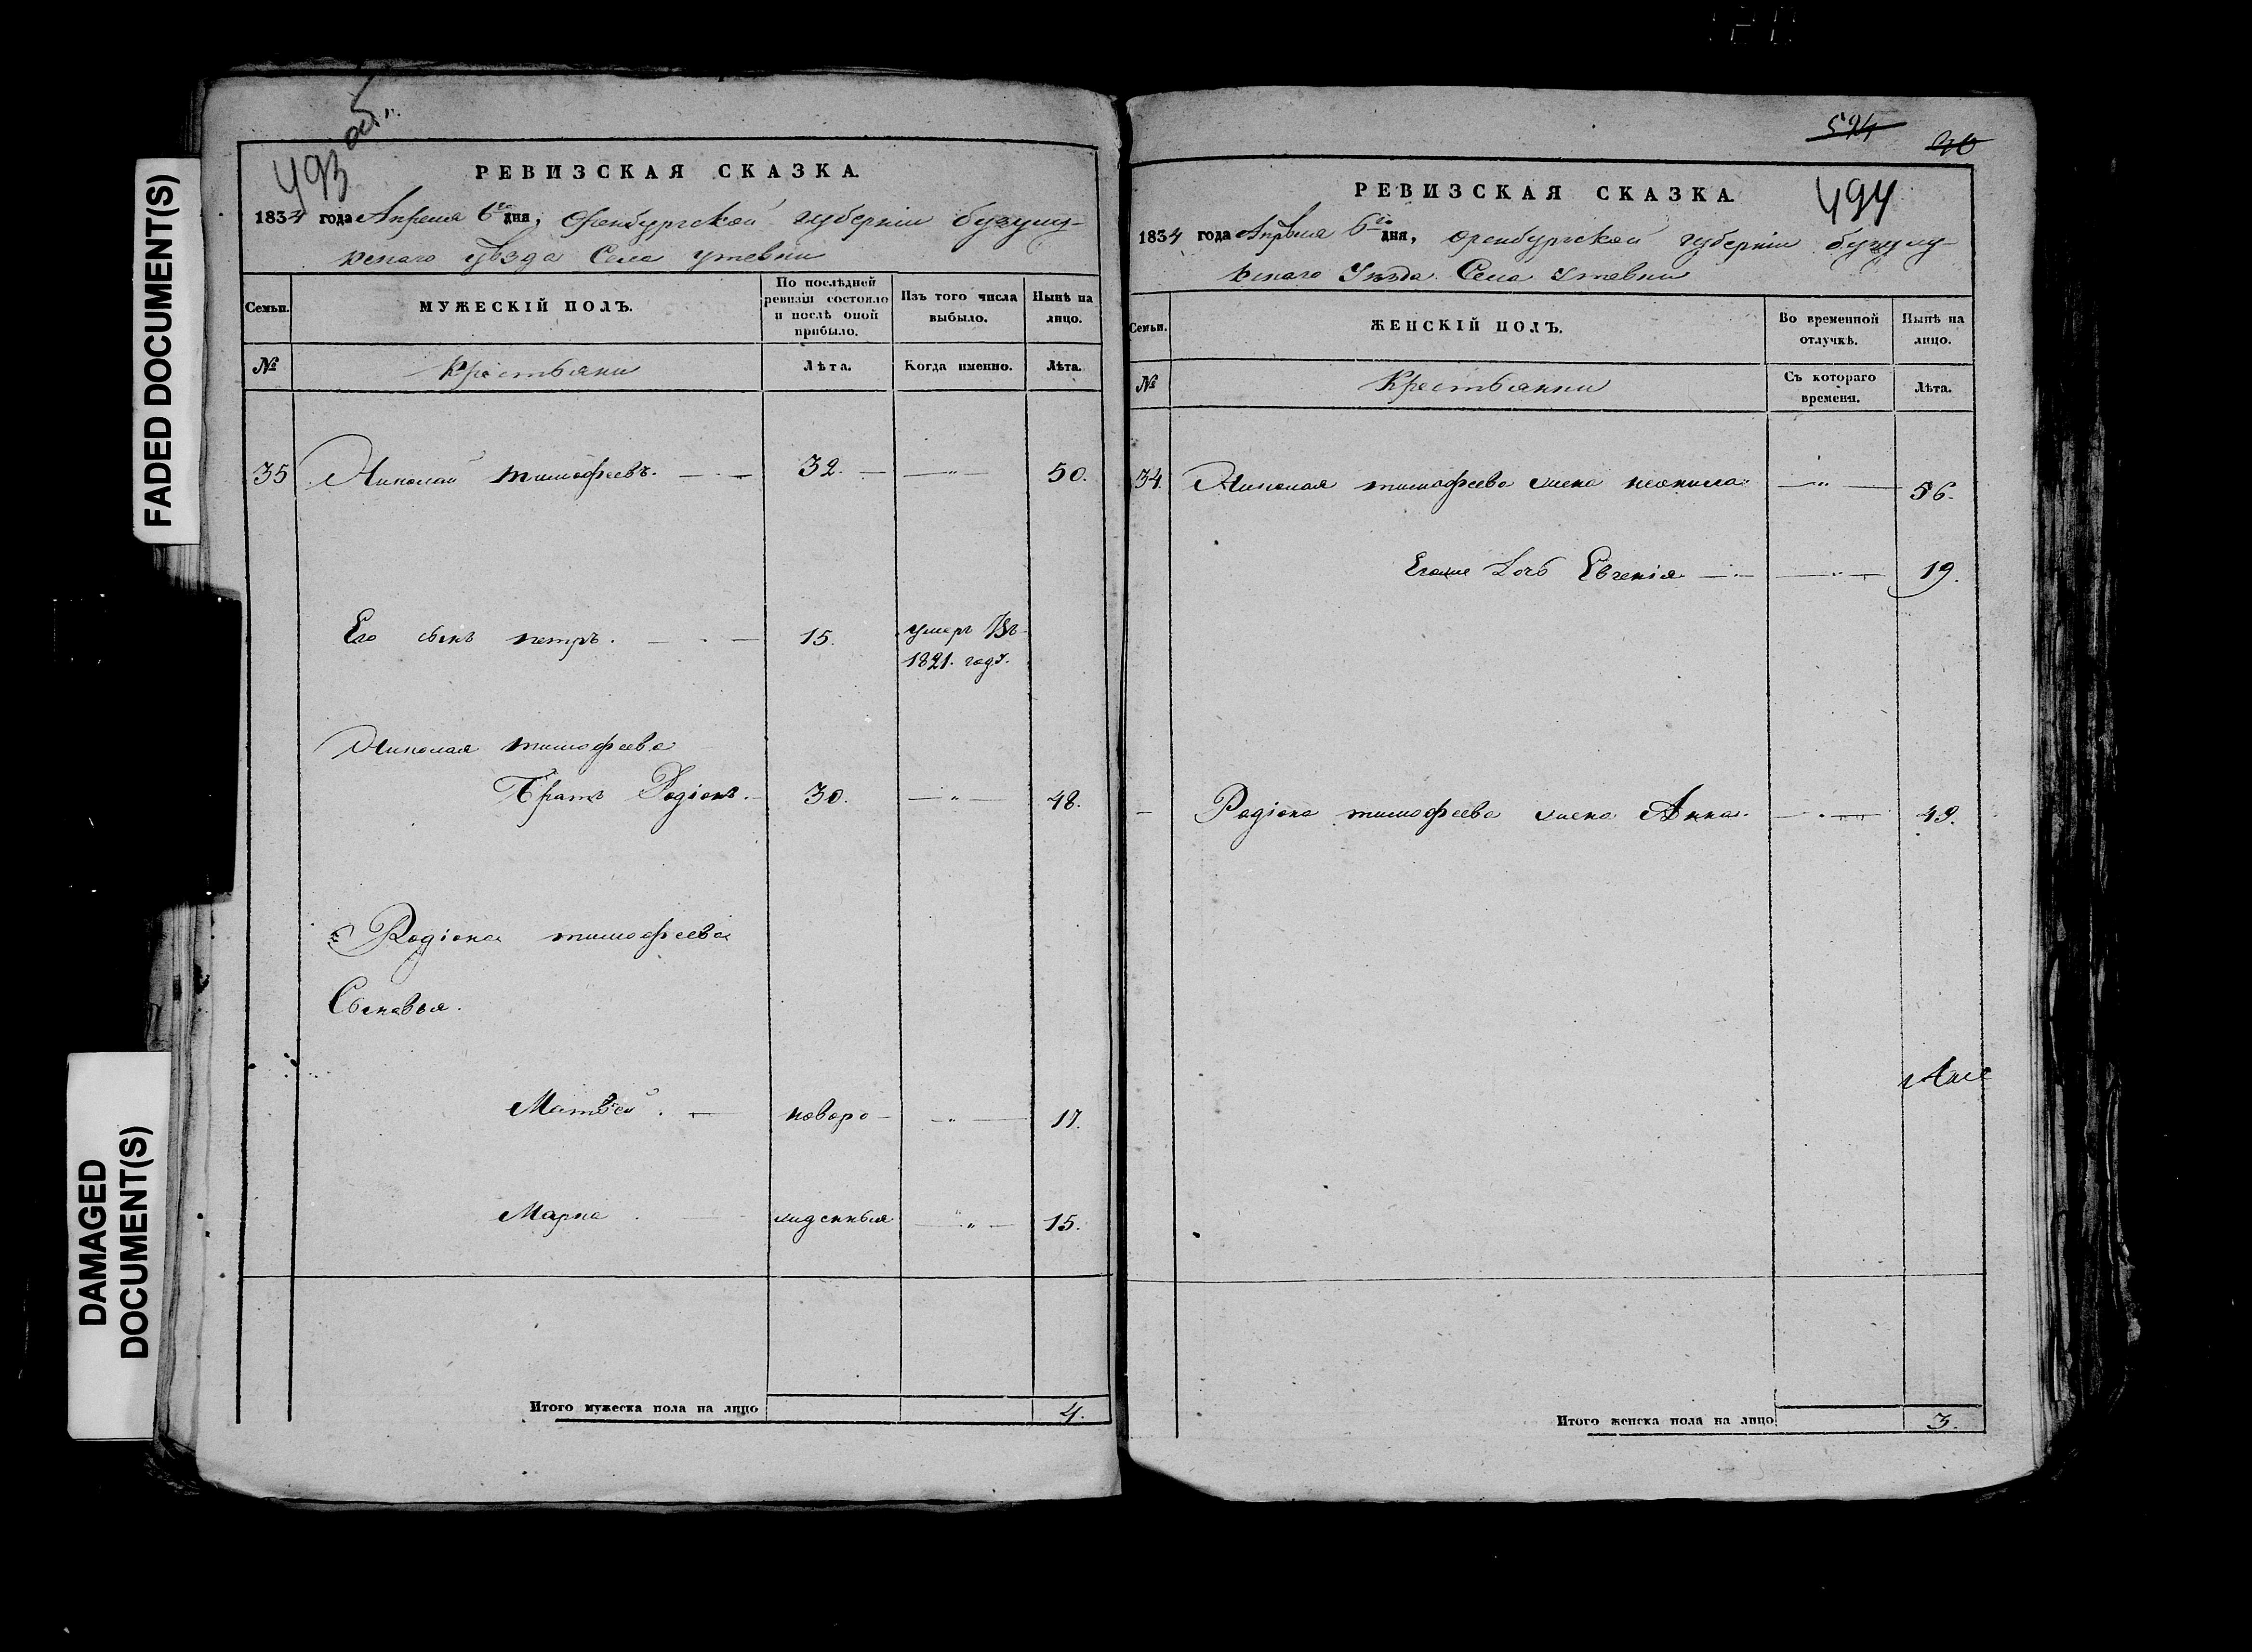 FADED DOCUMENT(S)
DAMAGED
DOCUMENT(S)
493 об.
РЕВИЗСКАЯ СКАЗКА.
1834 года Апреля 6го дня, Оренбургской губернiи бузулу-
кскаго уѣзда Села утевки
Семьи. МУЖЕСКIЙ ПОЛЪ. По послѣдней ревизiи состояло и послѣ оной прибыло. Изъ того числа выбыло. Нынѣ на лицо.
№ Крестьяни Лѣта. Когда именно. Лѣта.
35 Николай тимофеевъ. 32. — " — 50.
Его сынъ петръ. 15. умеръ Въ
1821. году.
Николая тимофеева
Братъ Родiонъ. 30. — " — 48.
Родiона тимофеева
Сыновья.
Матвѣй. новоро — " — 17.
Марка жденныя — " — 15.
Итого мужеска пола на лицо 4.
524 40
494
РЕВИЗСКАЯ СКАЗКА.
1834 года Апрѣля 6го дня, оренбургской губернiи бузулу-
кскаго Уѣзда Села Утевки
Семьи. ЖЕНСКIЙ ПОЛЪ. Во временной отлучкѣ. Нынѣ на лицо.
№ Крестьянки Съ котораго времени. Лѣта.
34. Николая тимафеева жена — " — 56.
Егоже Дочь Евгенiя — " — 19.
— Радiона тимофеева жена Анна. — " — 49.
Итого женска пола на лицо 3.